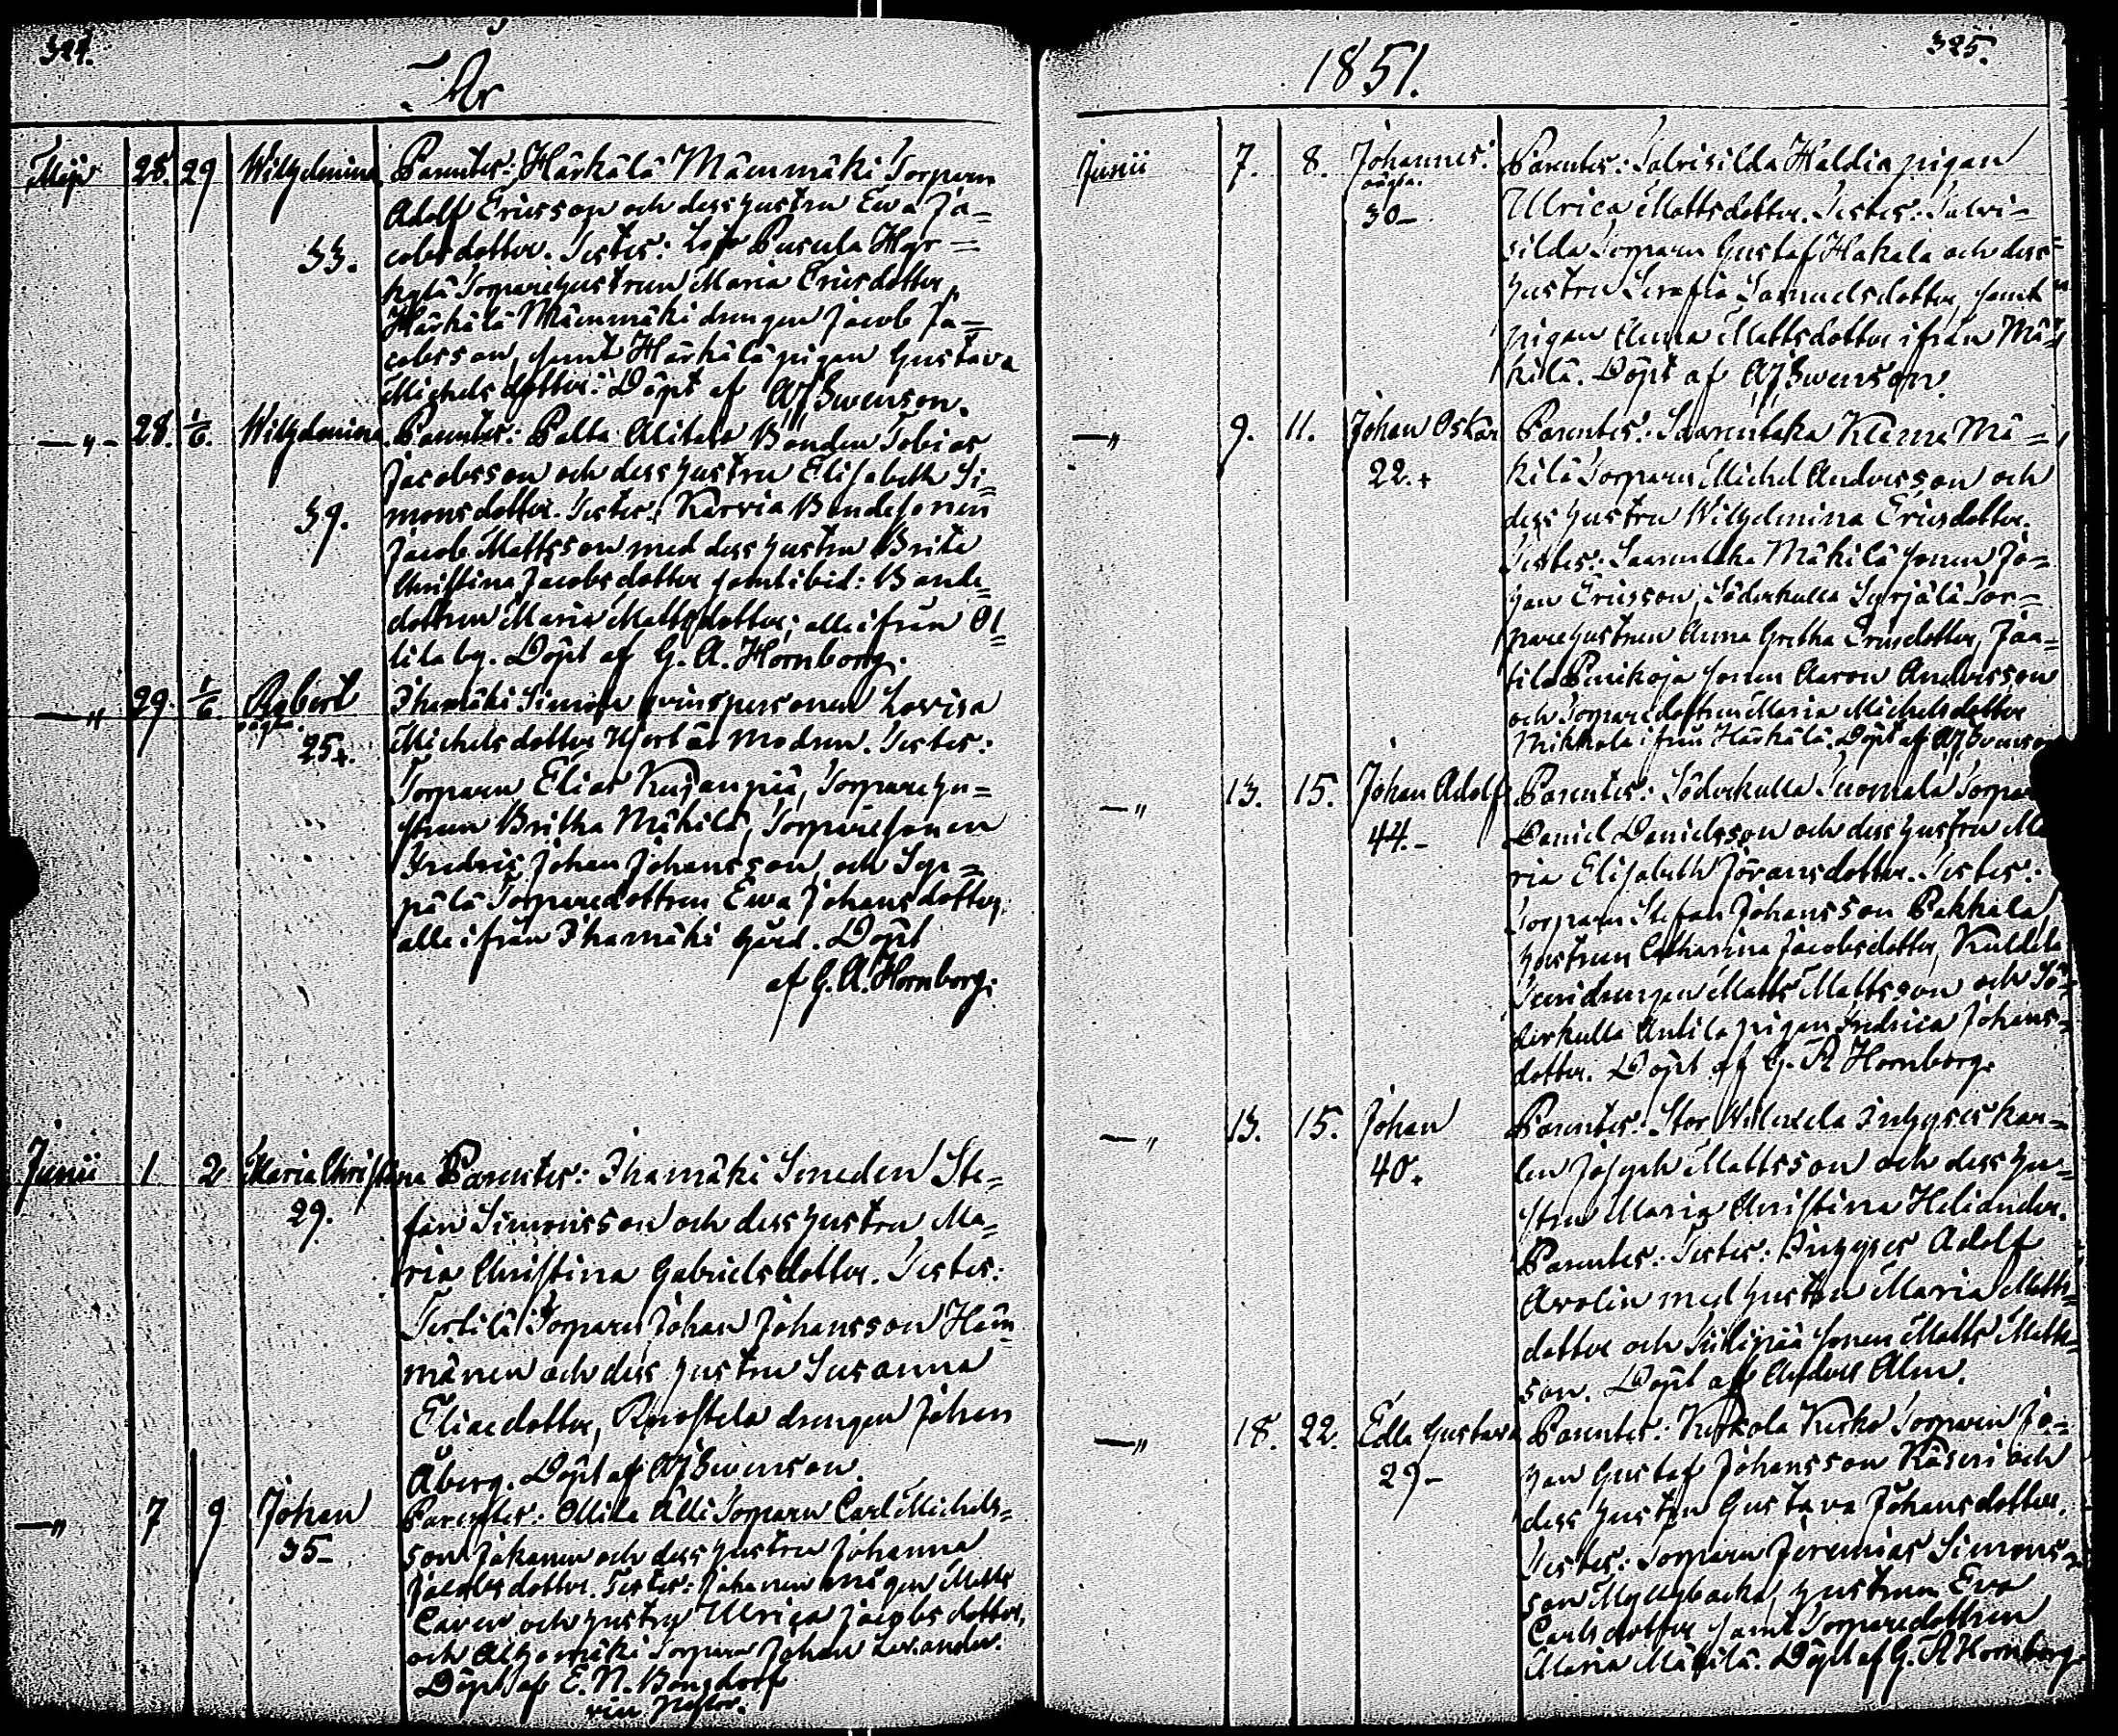 324.
År
Maji 28. 29 Wilhelmina Parentes: Härkälä Mämmäki Torparn
Adolf Ericsson och dess hustru Ewa Ja=
33. cobsdotter. Testes: Lojo Pusula Hyr=
kylä Torparehustrun Maria Ericsdotter,
Härkälä Mämmäki drengen Jacob Ja=
cobsson, samt Härkälä pigan Gustava
Michelsdotter. Döpt af AJ Swenson.
—„— 28. 1/6. Wilhelmina Parentes: Palla Alitalo Bonden Tobias
Jacobsson och dess hustru Elisabeth Si=
39. monsdotter. Testes: Karvia Bondesonen
Jacob Mattsson med dess hustru Brita
Christina Jacobsdotter samt ibid: Bonde=
dottren Maria Mattsdotter; alla ifrån Ol=
lila by. Döpt af G. A. Hornborg.
—„ 29. 1/6. Robert Ihamäki Simola qvinspersonen Lovisa
oägta. 25+. Michelsdotter Hjort är modren. Testes:
Torparn Elias Kujanpiä, Torparehu=
strun Britha Mäkilä, Torparesonen
Fredric Johan Johansson, och Sep=
pälä Torparedottren Ewa Johansdotter,
alla ifrån Ihamäki gård. Döpt
af G. A. Hornborg.
Junii 1 2 Maria Christina Parentes: Ihamäki Smeden Ste=
29. fan Simonsson och dess hustru Ma=
ria Christina Gabrielsdotter. Testes:
Torparn Johan Johansson Häm=
mänen och dess hustru Susanna
Eliaedotter, drengen Johan
Åberg. Döpt af AJ Swenson.
—„ 7 9 Johan Parentes: Ollila Alli Torparn Carl Michels=
35— son Jakanen och dess hustru Johanna
Jacobsdotter. Testes: Matts
och hustru Ulrica Jacobsdotter,
och Torparn Johan Levander.
Döpt af E. N. Bongdorf
vice Pastor.
325.
1851.
Junii 7. 8. Johannes. Parentes: Salvisilda Haldia pigan
oägta. 30— Ulrica Mattsdotter. Testes: Salvi=
silda Torparn Gustaf Hakala och dess
hustru Serafia Samuelsdotter, samt
pigan Anna Mattsdotter ifrån Mä=
kilä. Döpt af AJ Swenson.
—„ 9. 11. Johan Oskar Parentes: Saarentaka Klemu Mä=
22.+ kilä Torparn Michel Andersson och
dess hustru Wilhelmina Ericsdotter.
Testes: Saarentaka Mäkilä sonen Jo=
han Ericsson, Söderkulla Syrjälä Tor=
parehustrun Anna Gretha Ericsdotter, Jaa=
tila Punikoja sonen Aaron Andersson
och Torparedottren Maria Michelsdotter
Mikkola ifrån Härkälä. Döpt af AJ Swenson
—„ 13. 15. Johan Adolf Parentes: Söderkulla Suomela Torpar
44.— Daniel Danielsson och dess hustru Ma
ria Elisabeth Göransdotter. Testes:
Torparn Stefan Johansson Pakkala,
hustrun Catharina Jacobsdotter, Kuldela
drengen Matts Mattsson och Sö=
derkulla Antila pigan Fredrica Johans=
dotter. Döpt af G. A Hornborg.
—„ 13. 15. Johan Parentes: Stor Wiluxela Inhyses kar=
40. len Joseph Mattsson och dess hu=
stru Maria Christina Heliander.
Parentes: Testes: Inhyses Adolf
Avolin med hustru Maria Matts=
dotter och Siilipää sonen Matts Matts=
son. Döpt af Anders Alm.
—„ 18. 22. Edla Gustava Parentes: Kerkola Kerko Torparn Jo=
29— han Gustaf Johansson Käseri och
dess hustru Gustava Johansdotter.
Testes: Torparn Jeremias Simons=
son Myllybacka, hustrun Eva
Carlsdotter samt Torparedottren
Maria Mäkilä. Döpt af G. A Hornborg.